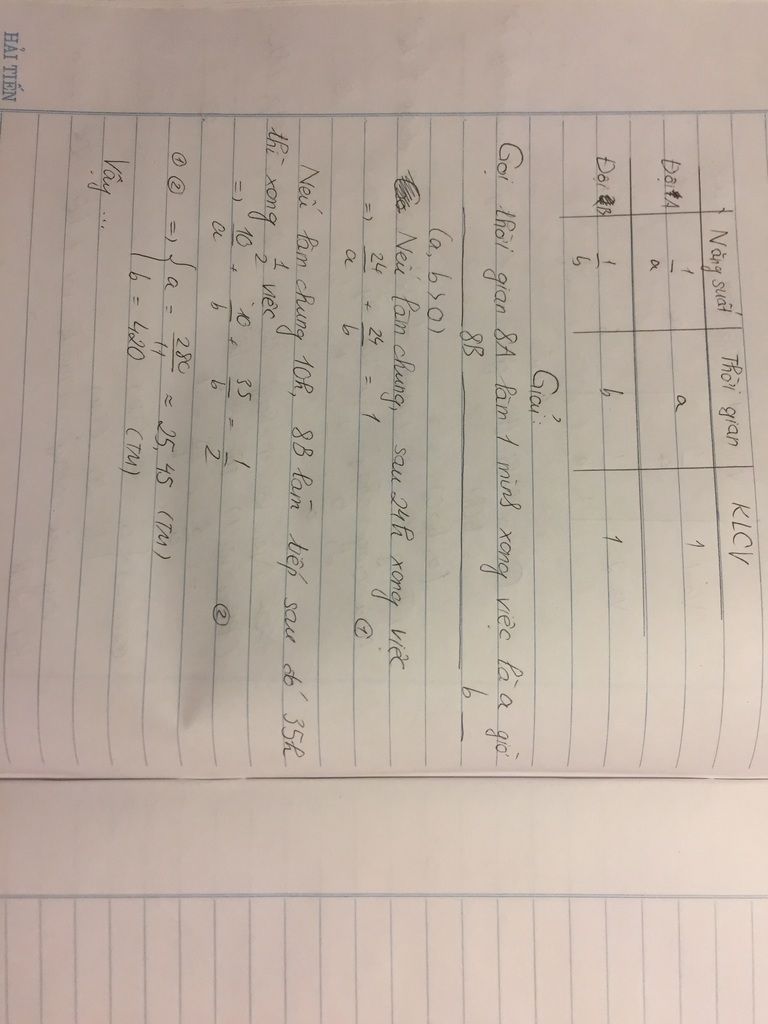 Năng suất Thời gian KLCV
Đội 8A 1/a a 1
Đội 8B 1/b b 1
Giải:
Gọi thời gian 8A làm 1 mình xong việc là a giờ
8B b
(a, b > 0)
Nếu làm chung, sau 24h xong việc
=> 24/a + 24/b = 1 ①
Nếu làm chung 10h, 8B làm tiếp sau đó 35h
thì xong 1/2 việc
=> 10/a + 10/b + 35/b = 1/2 ②
① ② => { a = 280/11 ≈ 25,45 (TM)
b = 420 (TM)
Vậy ...
HẢI TIẾN